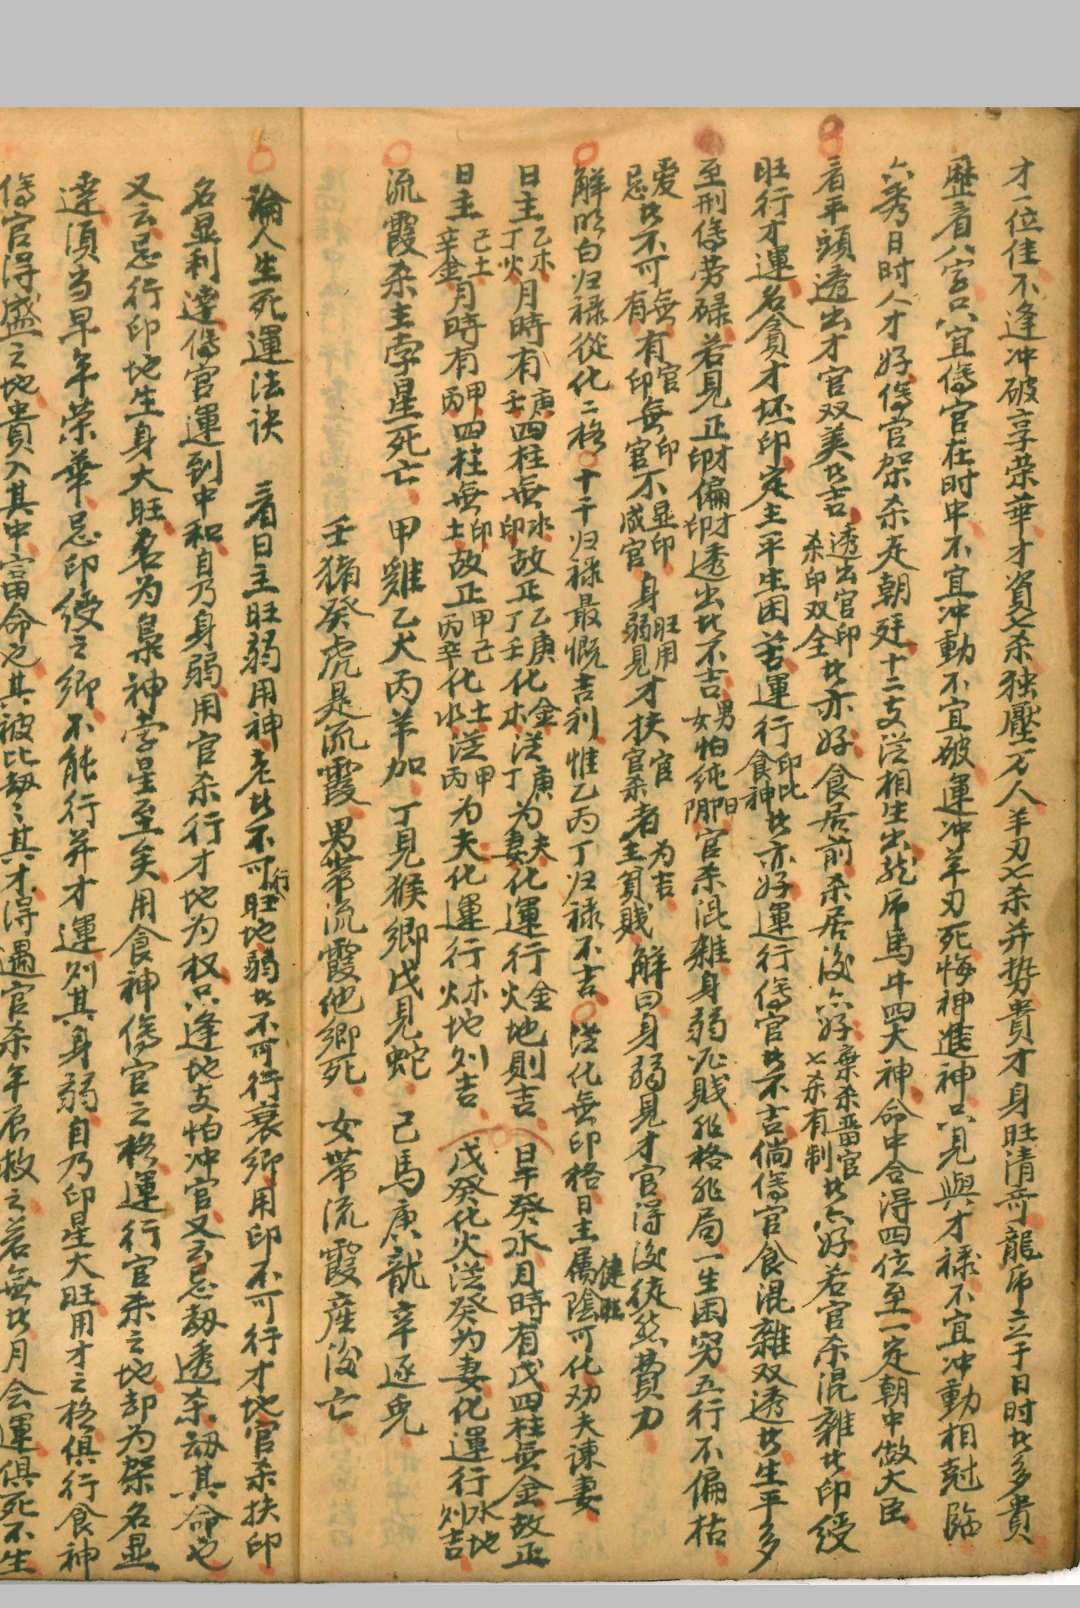 才一位佳不逢冲破享荣華才資七杀独壓万人羊刃七杀并势貴才身旺清奇龍虎立于日时者多貴
歷看八字只宜傷官在时中不宜冲動不宜破運冲羊刃死悔神進神只見與才禄不宜冲動相尅臨
六秀日时人才好傷官架杀走朝廷十二支從相生出龍虎馬牛四大神命中合得四位至一定朝中做大臣
看平頭透出才官双美者吉透出官印杀印双全者亦好食居前杀居後亦好棄杀畱官七杀有制者亦好若官杀混雜者印綬
旺行才運名貪才坏印定主平生困苦運行印比食神者亦好運行傷官者不吉倘傷官食混雜双透者生平多
至刑傷劳碌若見正財正印偏財偏印透出者不吉男女怕纯陽陰官杀混雜身弱泥賤非格非局一生困穷五行不偏枯
爱忌者不可無有有官印無印官不显印咸官身旺弱用見才扶官官杀者为吉主貧賤解曰身弱見才官得後徒然費力
解明白归禄從化二格十干归禄最慨吉利惟乙丙丁归禄不吉從化無印格日主健旺属陰可化劝夫諫妻
日主乙木丁火月時有庚壬四柱無水印故正乙庚丁壬化金木從庚丁为夫妻化運行金火地則吉日干癸水月時有戊四柱無金故正
日主己土辛金月時有甲丙四柱無印土故正甲己丙辛化土水從甲丙为夫化運行木火地则吉戊癸化火從癸为妻化運行水地则吉
流霞杀主孛星死亡甲雞乙犬丙羊加丁見猴鄉戊見蛇己馬庚龍辛逐兎
壬猪癸虎是流霞男帶流霞他鄉死女帶流霞産後亡
論人生死運法訣看日主旺弱用神老者不可行旺地弱者不可行衰鄉用印不可行才地官杀扶印
名显利達傷官運到中和自乃身弱用官杀行才地为权只逢地支怕冲官又云忌劫透杀刼其命也
又云忌行印地生身大旺名为梟神孛星至矣用食神傷官之格運行官杀之地却为架名显
達須当早年荣華忌印綬之鄉不能行并才運则其身弱自乃印星大旺用才之格俱行食神
傷官得盛之地貴入其中富命也其被比劫之其才得遇官杀年辰救之若無者月令運俱死不生